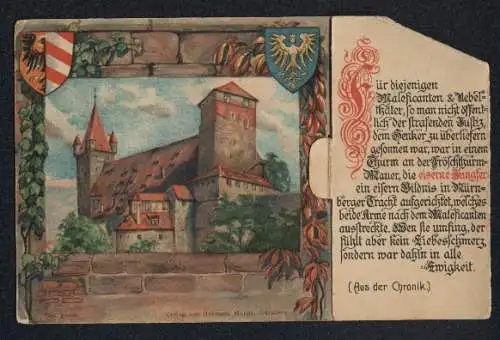 Für diejenigen
Maleficanten & Uebel-
thäter, so man nicht öffent-
lich der strafenden Justiz,
dem Henker zu überliefern
gesonnen war, war in einem
Thurm an der Fröschthurm-
Mauer, die eiserne Jungfer
ein eisern Bildnis in Nürn-
berger Tracht aufgerichtet, welches
beide Arme nach dem Maleficanten
ausstreckte. Wen sie umfing, der
fühlt aber kein Liebesschmerz,
sondern war dahin in alle
Ewigkeit.
(Aus der Chronik.)
Verlag von Hermann